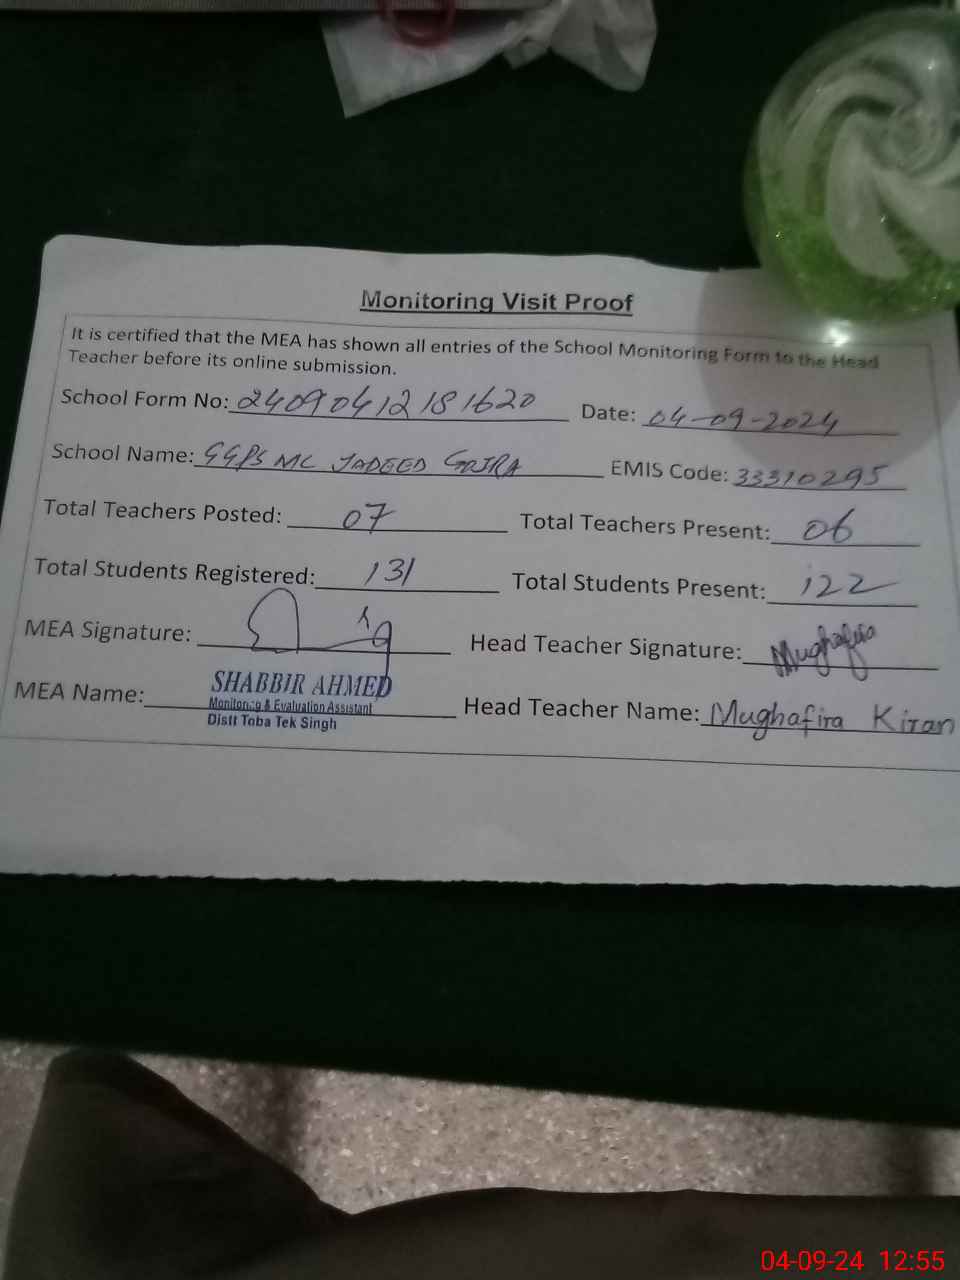 Monitoring Visit Proof
It is certified that the MEA has shown all entries of the School Monitoring Form to the Head
Teacher before its online submission.
School Form No: 24090412181620 Date: 04-09-2024
School Name: GGPS MC JADEED GOJRA EMIS Code: 33310295
Total Teachers Posted: 07 Total Teachers Present: 06
Total Students Registered: 131 Total Students Present: 122
MEA Signature: Head Teacher Signature: Mughafira
MEA Name: SHABBIR AHMED Head Teacher Name: Mughafira Kiran
Monitoring & Evaluation Assistant
Distt Toba Tek Singh
04-09-24 12:55